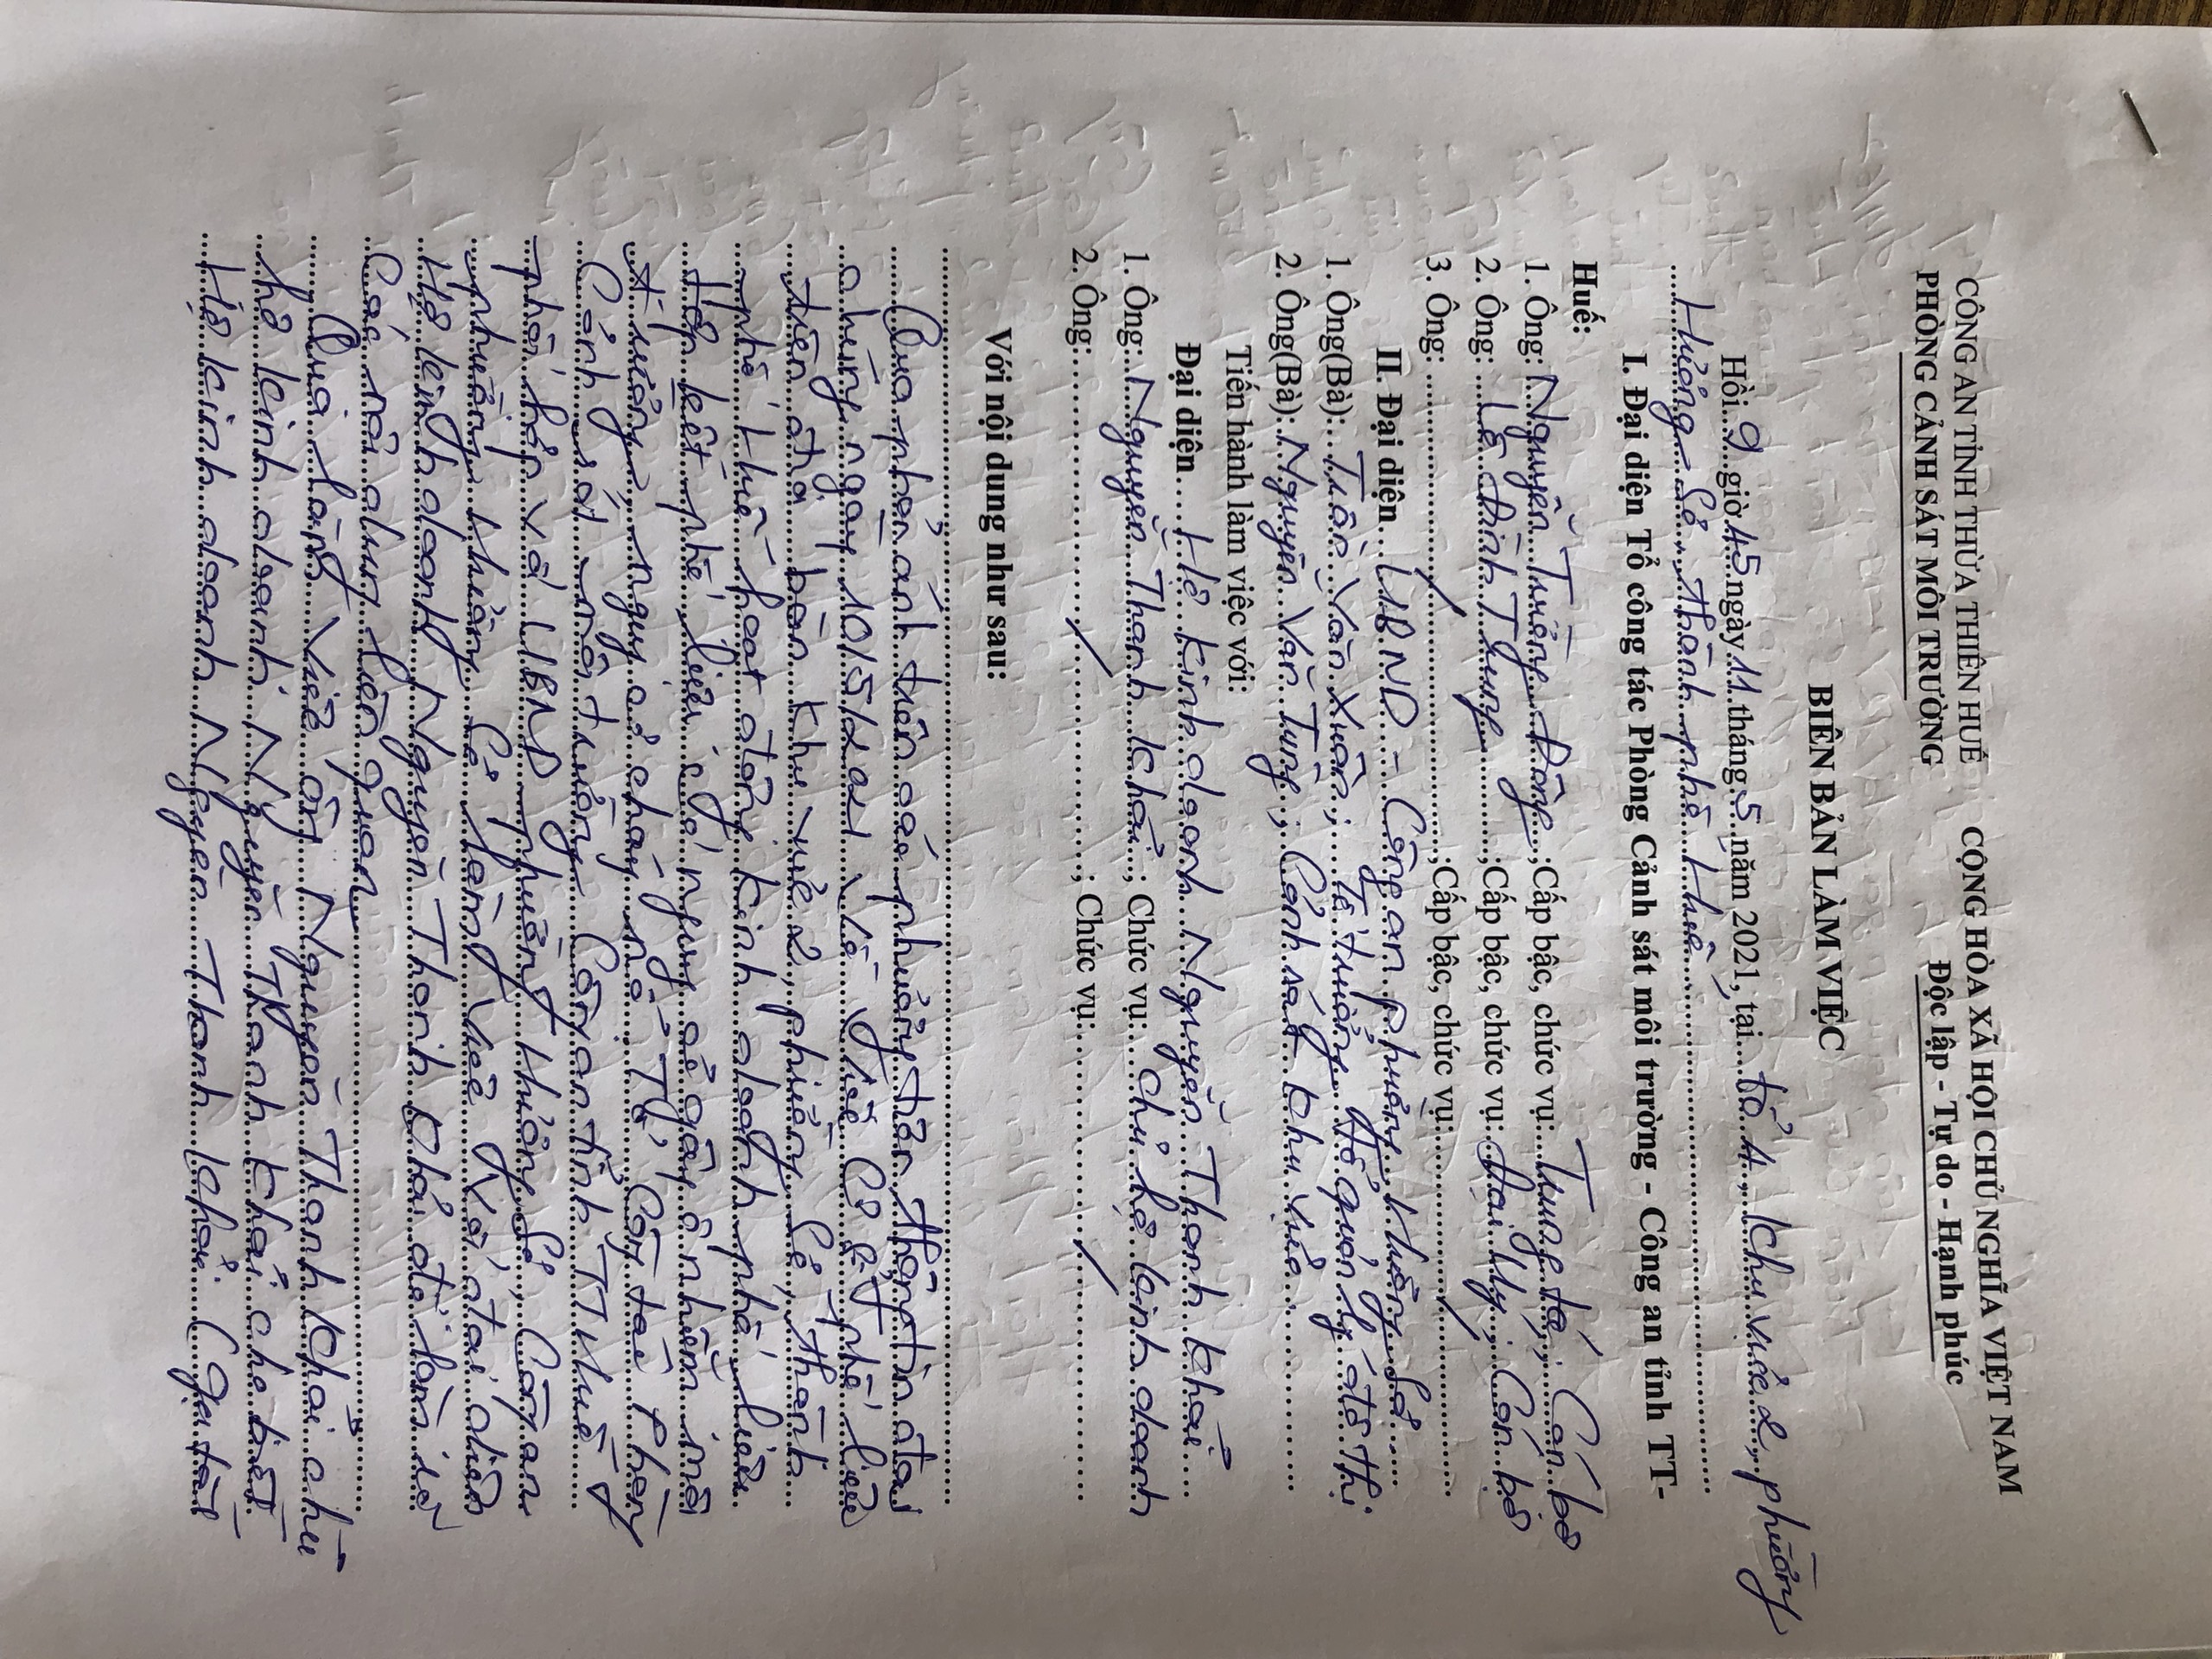 CÔNG AN TỈNH THỪA THIÊN HUẾ CỘNG HÒA XÃ HỘI CHỦ NGHĨA VIỆT NAM
PHÒNG CẢNH SÁT MÔI TRƯỜNG Độc lập - Tự do - Hạnh phúc
BIÊN BẢN LÀM VIỆC
Hồi 9 giờ 45 ngày 11 tháng 5 năm 2021, tại tổ 4, khu vực 2, phường
Hương Sơ, thành phố Huế
I. Đại diện Tổ công tác Phòng Cảnh sát môi trường - Công an tỉnh TT-
Huế:
1. Ông: Nguyễn Trường Đông; Cấp bậc, chức vụ: Trung tá; Cán bộ
2. Ông: Lê Đình Trung; Cấp bậc, chức vụ: Đại úy; Cán bộ
3. Ông: ; Cấp bậc, chức vụ:
II. Đại diện UBND - Công an phường Hương Sơ
1. Ông(Bà): Trần Văn Xuân; Tổ trưởng tổ quản lý đô thị
2. Ông(Bà): Nguyễn Văn Tùng; Cảnh sát khu vực
Tiến hành làm việc với:
Đại diện Hộ kinh doanh Nguyễn Thanh Khải
1. Ông: Nguyễn Thanh Khải; Chức vụ: Chủ hộ kinh doanh
2. Ông: ; Chức vụ:
Với nội dung như sau:
Qua phản ánh trên các phương tiện thông tin đại
chúng ngày 10/5/2021 về việc cơ sở phế liệu
trên địa bàn khu vực 2, phường Sơ, thành
phố Huế hoạt động kinh doanh phế liệu
tập kết phế liệu có nguy cơ gây ô nhiễm môi
trường, nguy cơ cháy nổ. Tổ Công tác Phòng
Cảnh sát môi trường Công an tỉnh TT Huế
phối hợp với UBND phường Hương Sơ, Công an
phường Hương Sơ làm việc với đại diện
Hộ kinh doanh Nguyễn Thanh Khải để làm rõ
các nội dung liên quan
Quá trình làm việc ông Nguyễn Thanh Khải chủ
hộ kinh doanh Nguyễn Thanh Khải cho biết
Hộ kinh doanh Nguyễn Thanh Khải